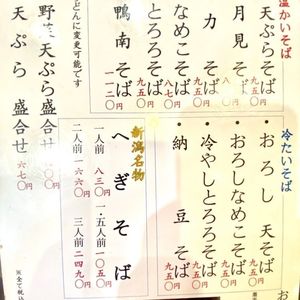 温かいそば
天ぷらそば
月見そば
力そば 九五〇
なめこそば 八七〇
とろろそば 九五〇
鴨南そば 一一二〇
どんに変更可能です
野菜天ぷら盛合せ
天ぷら盛合せ 六七〇
冷たいそば
おろし天そば
おろしなめこそば 九五〇
冷やしとろろそば 九五〇
納豆そば 九五〇
新潟名物
へぎそば
一人前 八三〇
一・五人前 一二〇五〇
二人前 一六六〇
三人前 二四九〇